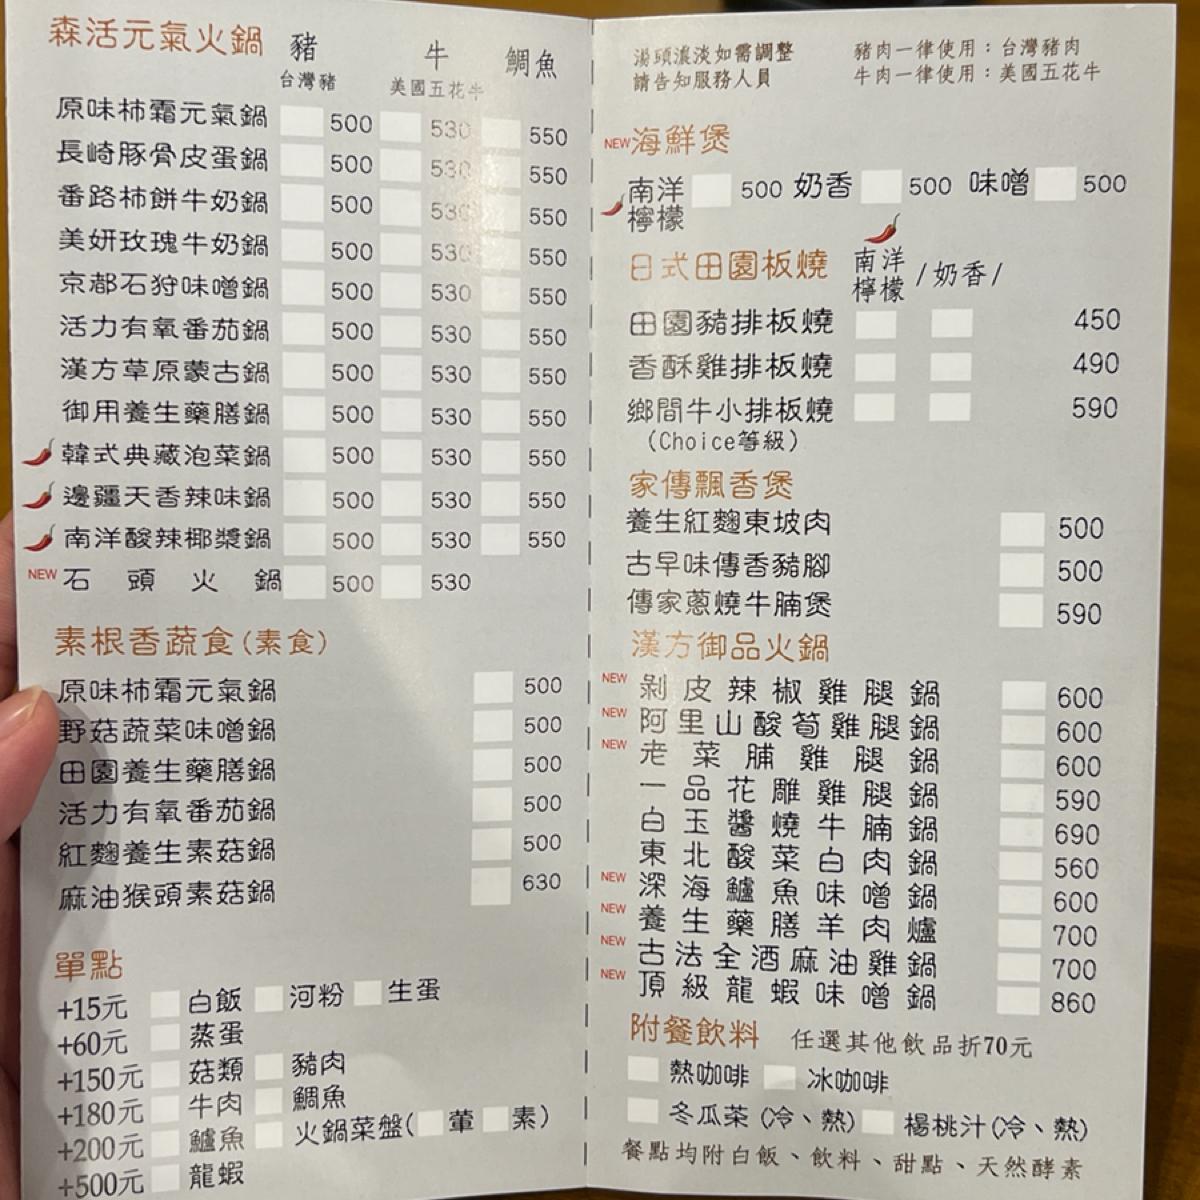 森活元氣火鍋 豬 牛 鯛魚
台灣豬 美國五花牛
原味柿霜元氣鍋 500 530 550
長崎豚骨皮蛋鍋 500 530 550
番路柿餅牛奶鍋 500 530 550
美妍玫瑰牛奶鍋 500 530 550
京都石狩味噌鍋 500 530 550
活力有氧番茄鍋 500 530 550
漢方草原蒙古鍋 500 530 550
御用養生藥膳鍋 500 530 550
韓式典藏泡菜鍋 500 530 550
邊疆天香辣味鍋 500 530 550
南洋酸辣椰漿鍋 500 530 550
NEW 石頭火鍋 500 530
素根香蔬食(素食)
原味柿霜元氣鍋 500
野菇蔬菜味噌鍋 500
田園養生藥膳鍋 500
活力有氧番茄鍋 500
紅麴養生素菇鍋 500
麻油猴頭素菇鍋 630
單點
+15元 白飯 河粉 生蛋
+60元 蒸蛋
+150元 菇類 豬肉
+180元 牛肉 鯛魚
+200元 鱸魚 火鍋菜盤(葷 素)
+500元 龍蝦
湯頭濃淡如需調整
請告知服務人員
豬肉一律使用：台灣豬肉
牛肉一律使用：美國五花牛
NEW 海鮮煲
南洋檸檬 500 奶香 500 味噌 500
日式田園板燒 南洋檸檬 / 奶香 /
田園豬排板燒 450
香酥雞排板燒 490
鄉間牛小排板燒 590
(Choice等級)
家傳飄香煲
養生紅麴東坡肉 500
古早味傳香豬腳 500
傳家蔥燒牛腩煲 590
漢方御品火鍋
NEW 剝皮辣椒雞腿鍋 600
NEW 阿里山酸筍雞腿鍋 600
NEW 老菜脯雞腿鍋 600
一品花雕雞腿鍋 590
白玉醬燒牛腩鍋 690
東北酸菜白肉鍋 560
NEW 深海鱸魚味噌鍋 600
NEW 養生藥膳羊肉爐 700
NEW 古法全酒麻油雞鍋 700
NEW 頂級龍蝦味噌鍋 860
附餐飲料 任選其他飲品折70元
熱咖啡 冰咖啡
冬瓜茶(冷、熱) 楊桃汁(冷、熱)
餐點均附白飯、飲料、甜點、天然酵素